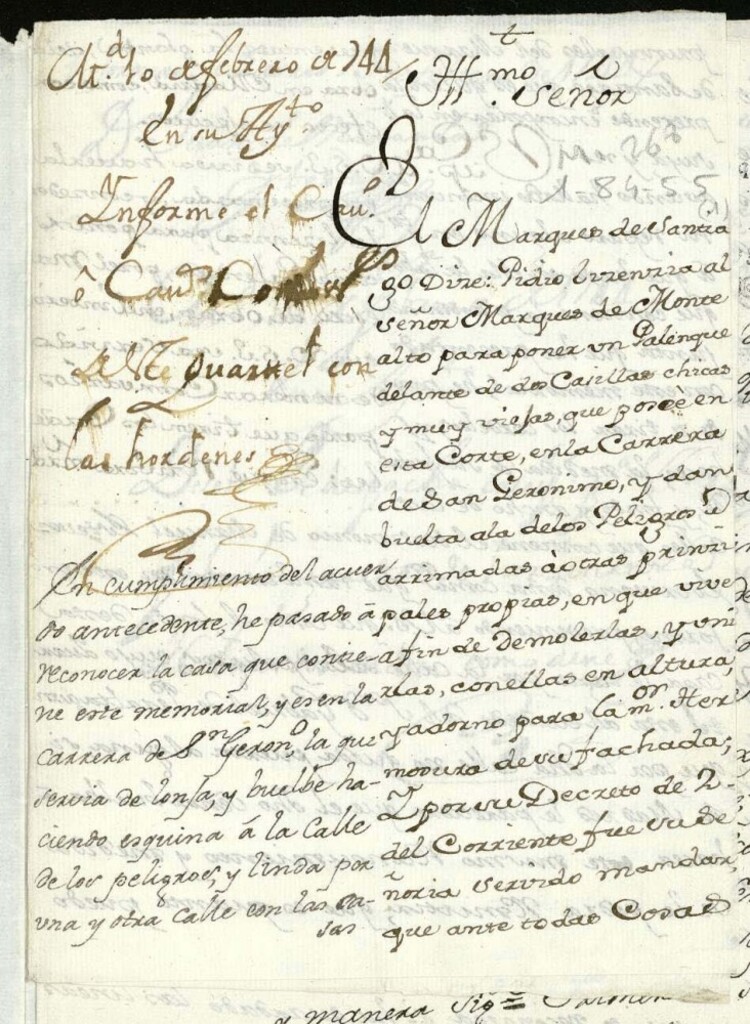 10 de febrero de 744
En su Ay.to
Informe el Cau.o
ô Cau.os
deste Quartel con
las hordenes
En cumplimiento del acuer
do antecedente, he pasado â
reconocer la casa que contie-
ne este memorial, y es en la
carrera de S.n Geron.o, la que
servia de lonja, y buelbe ha-
ciendo esquina â la Calle
de los peligros, y linda por
una y otra calle con las ca-
sas
Ill.mo Señor
El Marques de Santia
go Dize: Pidio lizenzia al
señor Marques de Monte
alto para poner un Palenque
delante de dos Casillas chicas
y muy viejas, que posêe en
esta Corte, en la Carrera
de San Geronimo, y dan
buelta a la de los Peligros
arrimadas â otras prinzi
pales propias, en que vive
a fin de demolerlas, y uni
rlas, con ellas en altura,
y adorno para la m.or Her
modura de su fachada;
Y por su Decreto de 2-
del Corriente fue su Se
ñoria servido mandar,
que ante todas Cosas
y manera